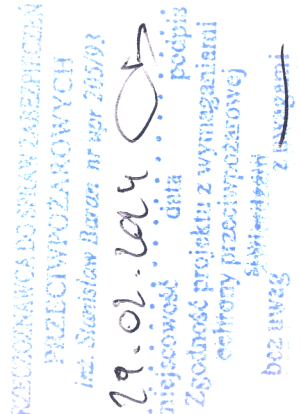 RZECZOZNAWCA DO SPRAW ZABEZPIECZEŃ
PRZECIWPOŻAROWYCH
inż. Stanisław Baran nr upr 205/93
29.02.2014
miejscowość data podpis
Zgodność projektu z wymaganiami
ochrony przeciwpożarowej
bez uwag z uwagami